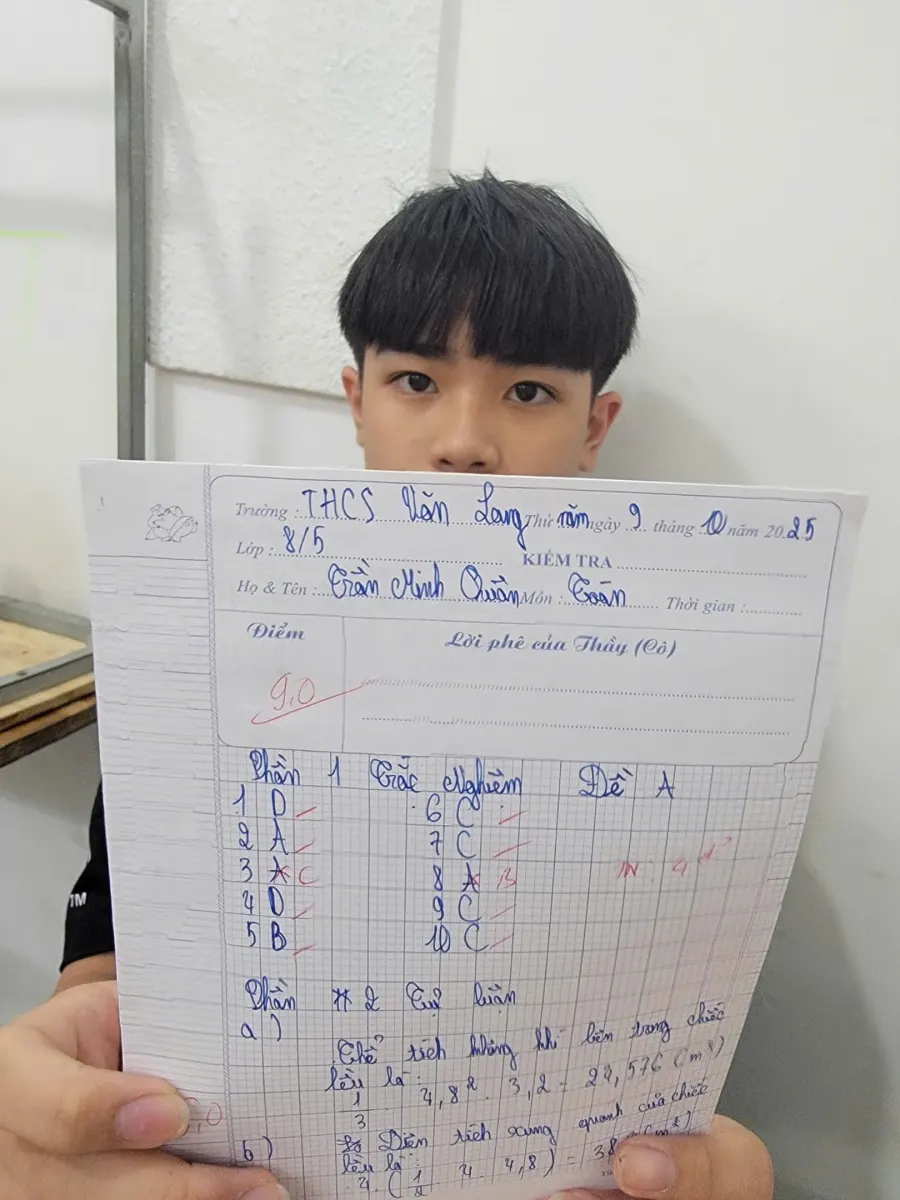 Trường : THCS Văn Lang Thứ năm ngày 9 tháng 10 năm 20.25
Lớp : 8/5 KIỂM TRA
Họ & Tên : Trần Minh Quân Môn : Toán Thời gian :
Điểm Lời phê của Thầy (Cô)
9,0
Phần 1 Trắc Nghiệm Đề A
1 D 6 C
2 A 7 C
3 A C 8 A B
4 D 9 C
5 B 10 C
Phần 2 Tự luận
a)
Thể tích không khí bên trong chiếc
lều là:
1/3 4,8² . 3,2 = 24,576 (m³)
b) Diện tích xung quanh của chiếc
lều là:
4 . (1/2 . 4 . 4,8) =
TM